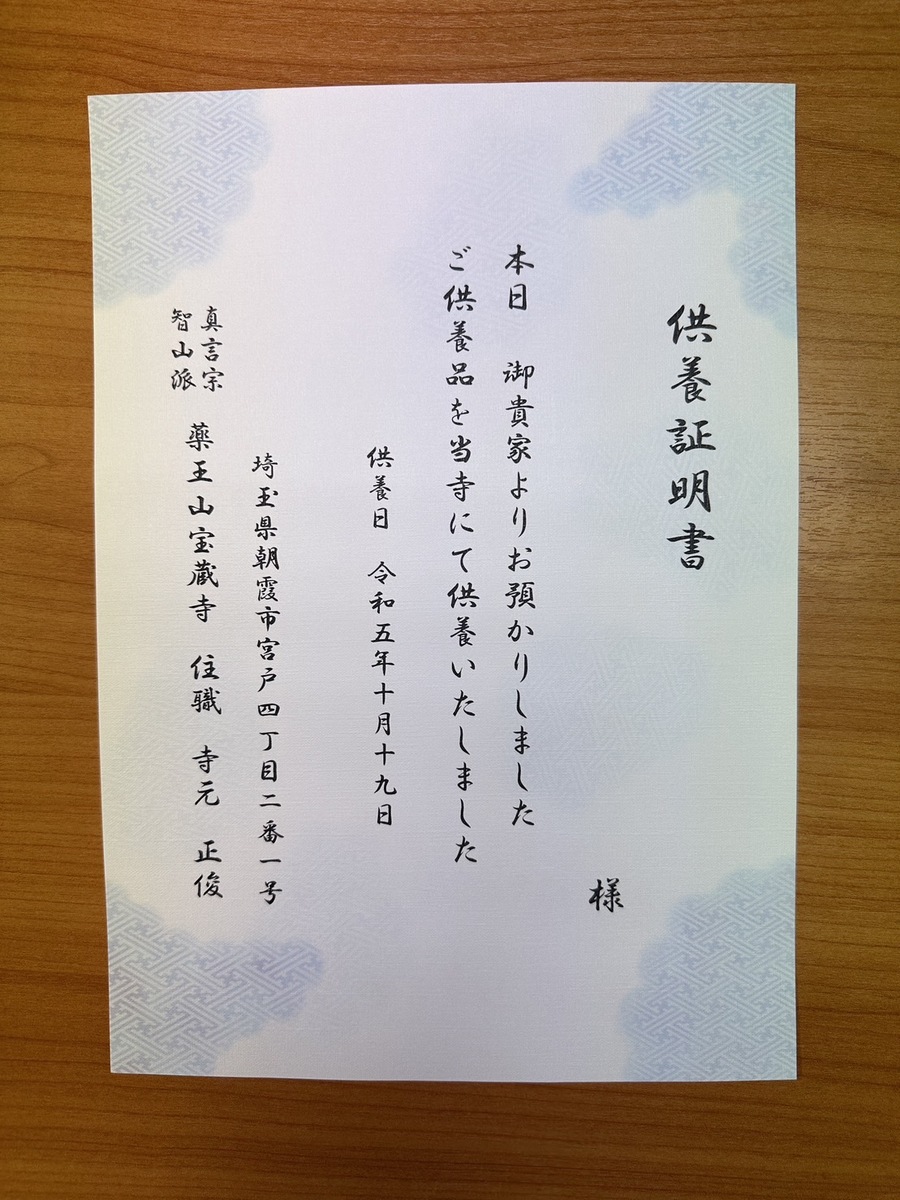 供養証明書
様
本日　御貴家よりお預かりしました
ご供養品を当寺にて供養いたしました
供養日　令和五年十月十九日
埼玉県朝霞市宮戸四丁目二番一号
真言宗
智山派
薬王山宝蔵寺　住職　寺元　正俊